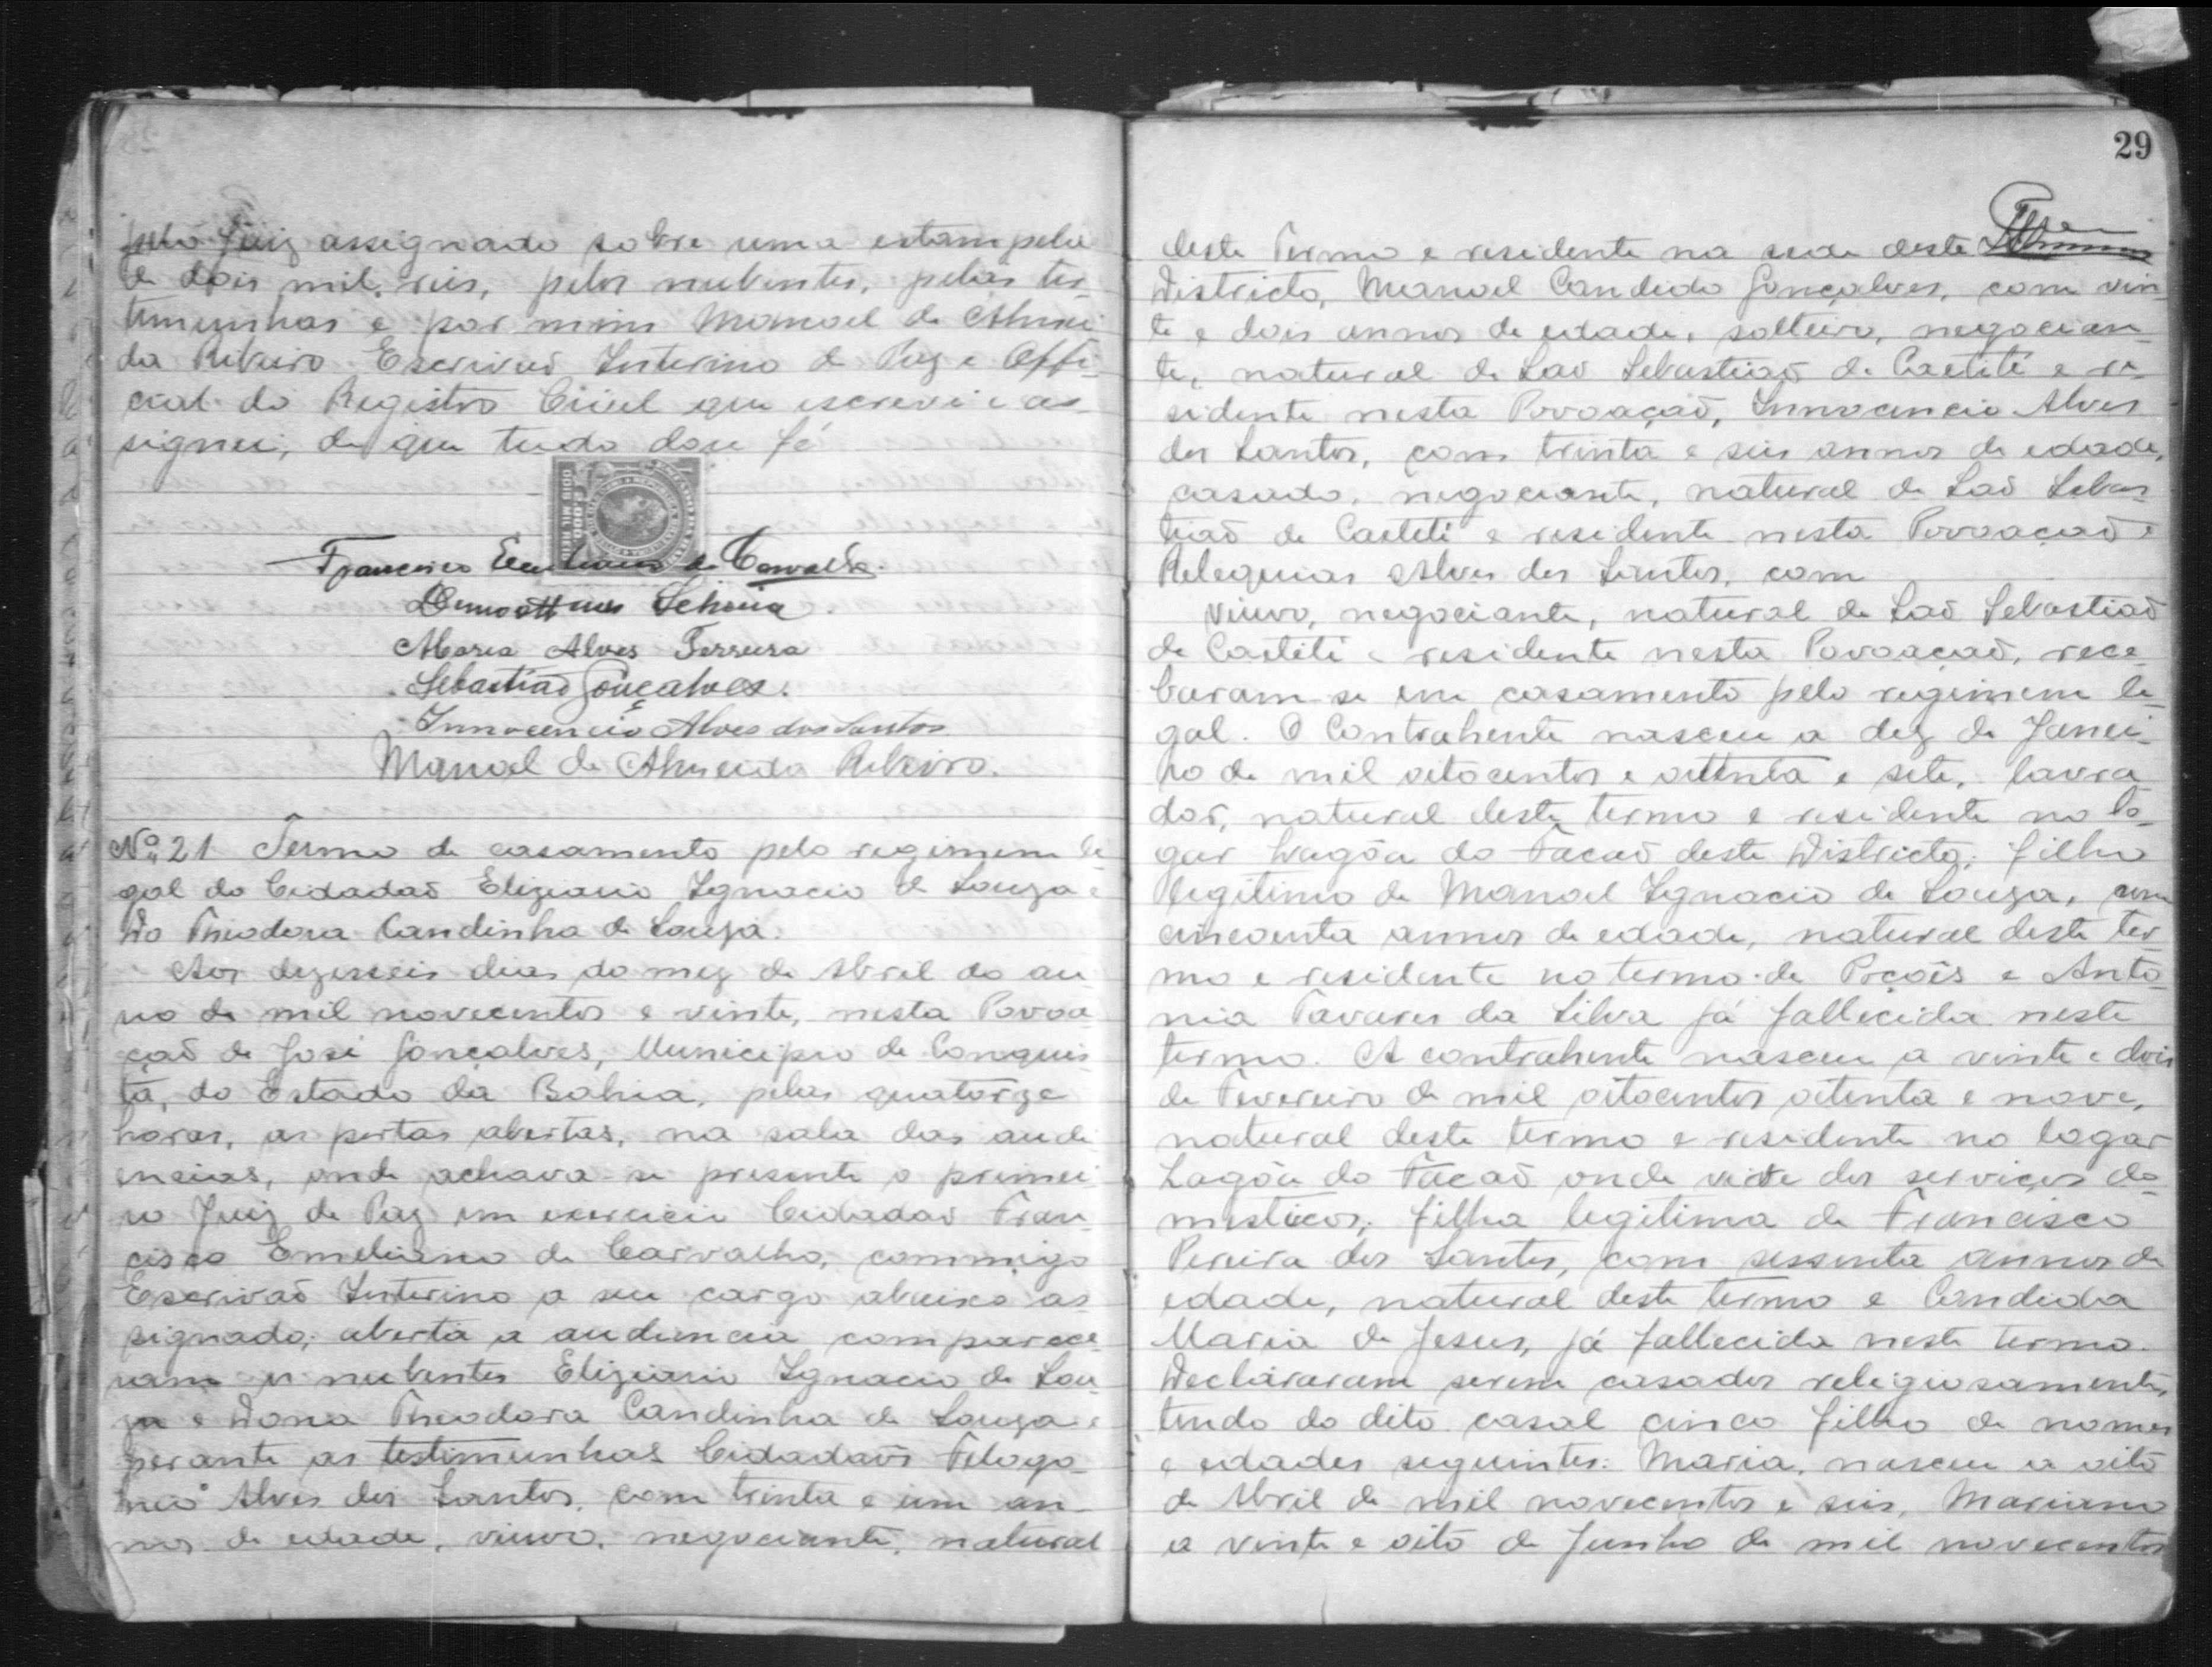 pelo Juiz assignado sobre uma estampilha
de dois mil reis, pelos nubentes, pelas tes-
temunhas e por mim Manoel de Almei-
da Ribeiro Escrivaõ Interino de Paz e Offi-
cial do Registro Civil que escrevi e as-
signei, de que tudo dou fé
DOIS MIL REIS
Francisco Emiliano de Carvalho.
Maria Alves Ferreira
Sebastiaõ Gonçalves.
Innocencio Alves dos Santos
Manoel de Almeida Ribeiro.
Nº 21 Termo de casamento pelo regimem le
gal do Cidadaõ Eliziario Ignacio de Souza e
Dª Theodora Candinha de Souza.
Aos dezesseis dias do mez de Abril do an
no de mil novecentos e vinte, nesta Povoa
çaõ de José Gonçalves, Municipio de Conquis
ta, do Estado da Bahia, pelas quatorze
horas, as portas abertas, na sala das audi
encias, onde achava-se presente o primei
ro Juiz de Paz em exercicio Cidadaõ Fran-
cisco Emeliano de Carvalho, commigo
Escrivaõ Interino a seu cargo abaixo as
signado; aberta a audiencia comparece-
ram os nubentes Eliziario Ignacio de Sou
za e Dona Theodora Candinha de Souza e
perante as testimunhas Cidadaõs Filogo-
nio Alves dos Santos, com trinta e um an-
nos de edade, viuvo, negociante, natural
29
deste Termo e residente na sede deste
Districto, Manoel Candido Gonçalves, com vin
te e dois annos de edade, solteiro, negocian
te, natural de Saõ Sebastiaõ de Caeteté e re-
sidente nesta Povoaçaõ, Innocencio Alves
dos Santos, com trinta e seis annos de edade,
casado, negociante, natural de Saõ Sebas-
tiaõ de Caeteté e residente nesta Povoaçaõ e
Reliquias Alves dos Santos, com
viuvo, negociante, natural de Saõ Sebastiaõ
de Caeteté e residente nesta Povoaçaõ, rece-
baram-se em casamento pelo regimem le-
gal. O Contrahente nasceu a dez de Janei-
ro de mil oitocentos e oittenta e sete, lavra
dor, natural deste termo e residente no lo-
gar Lagôa do Facaõ deste Districto; filho
legitimo de Manoel Ignacio de Souza, com
cincoenta annos de edade, natural deste ter
mo e residente no termo de Poçoẽs e Anto-
nia Tavares da Silva já fallecida neste
termo. A contrahente nasceu a vinte e dois
de Fevereiro de mil oitocentos oitenta e nove,
natural deste termo e residente no logar
Lagôa do Facaõ onde vive dos serviços do-
mesticos; filha legitima de Francisco
Pereira dos Santos, com sessenta annos de
edade, natural deste termo e Candida
Maria de Jesus, já fallecida neste termo.
Declararam serem casados religiosamente,
tendo do dito casal cinco filho de nomes
e edades seguintes: Maria, nasceu a oito
de Abril de mil novecentos e seis, Mariano
a vinte e oito de Junho de mil novecentos